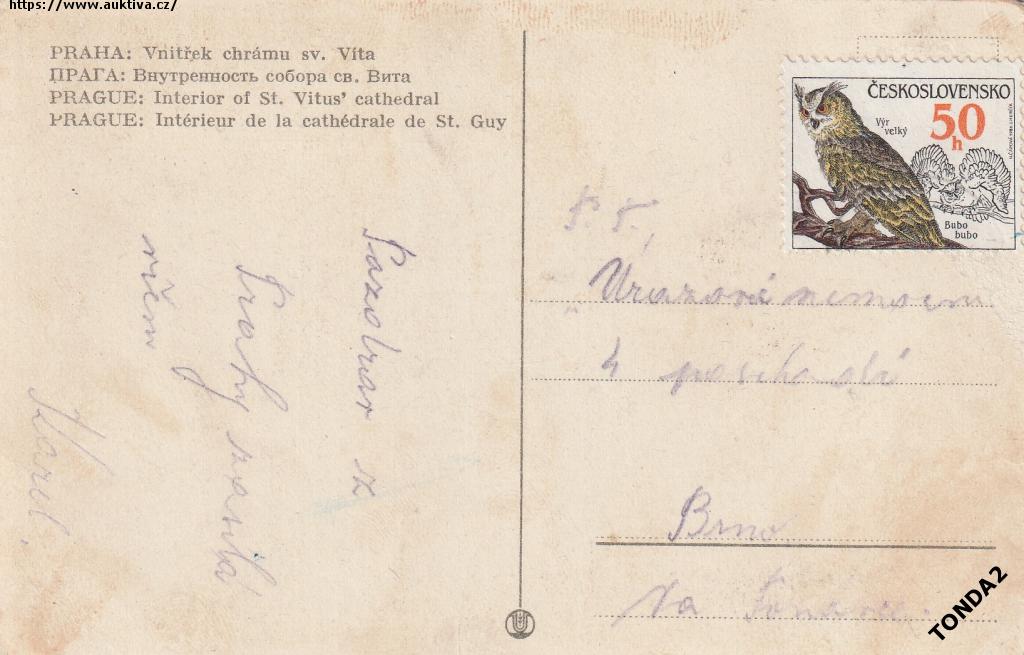 https://www.auktiva.cz/
PRAHA: Vnitřek chrámu sv. Víta
ПРАГА: Внутренность собора св. Вита
PRAGUE: Interior of St. Vitus' cathedral
PRAGUE: Intérieur de la cathédrale de St. Guy
ČESKOSLOVENSKO
50 h
Výr
velký
Bubo
bubo
Pozdrav z
Prahy
všem
Karel.
Úrazová
4 poschodí
Brno
Na
TONDA2